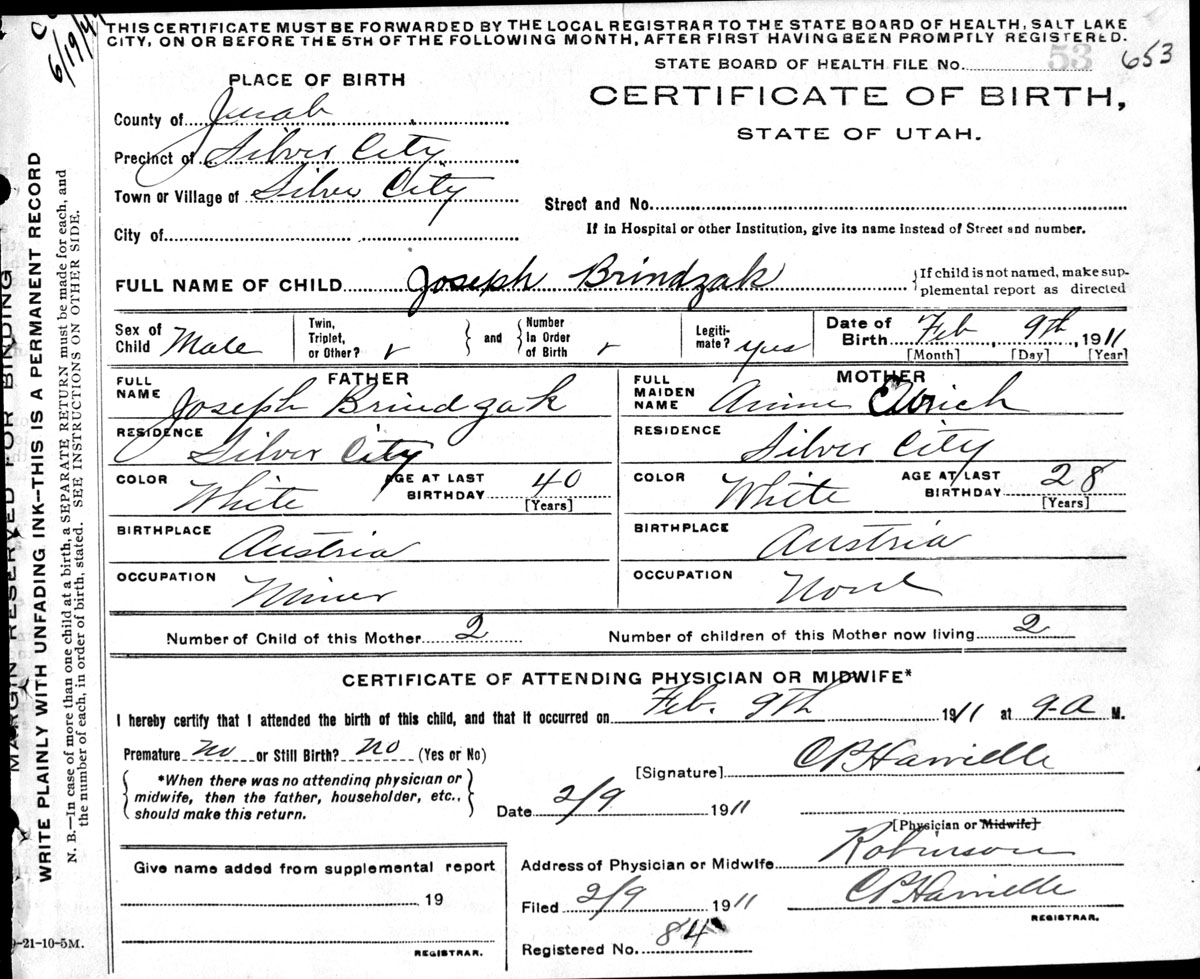 6/19/4
THIS CERTIFICATE MUST BE FORWARDED BY THE LOCAL REGISTRAR TO THE STATE BOARD OF HEALTH, SALT LAKE
CITY, ON OR BEFORE THE 5TH OF THE FOLLOWING MONTH, AFTER FIRST HAVING BEEN PROMPTLY REGISTERED.
STATE BOARD OF HEALTH FILE No. 53 653
PLACE OF BIRTH
CERTIFICATE OF BIRTH,
STATE OF UTAH.
County of Juab
Precinct of Silver City
Town or Village of Silver City
Street and No.
City of
If in Hospital or other Institution, give its name instead of Street and number.
FULL NAME OF CHILD Joseph Brindzak
If child is not named, make sup-
plemental report as directed
Sex of Child Male
Twin, Triplet, or Other? and Number In Order of Birth
Legiti-mate? yes
Date of Birth Feb, 9th, 1911
[Month] [Day] [Year]
FATHER
FULL NAME Joseph Brindzak
RESIDENCE Silver City
COLOR White AGE AT LAST BIRTHDAY 40
[Years]
BIRTHPLACE Austria
OCCUPATION Miner
MOTHER
FULL MAIDEN NAME
RESIDENCE Silver City
COLOR White AGE AT LAST BIRTHDAY 28
[Years]
BIRTHPLACE Austria
OCCUPATION None
Number of Child of this Mother 2 Number of children of this Mother now living 2
CERTIFICATE OF ATTENDING PHYSICIAN OR MIDWIFE*
I hereby certify that I attended the birth of this child, and that it occurred on Feb. 9th 1911 at 9-A M.
Premature no or Still Birth? no (Yes or No)
*When there was no attending physician or
midwife, then the father, householder, etc.,
should make this return.
[Signature]
Date 2/9 1911
[Physician or Midwife]
Address of Physician or Midwife Robinson
Filed 2/9 1911
REGISTRAR.
Registered No. 84
Give name added from supplemental report
19
REGISTRAR.
9-21-10-5M.
MARGIN RESERVED FOR BINDING
WRITE PLAINLY WITH UNFADING INK--THIS IS A PERMANENT RECORD
N. B.—In case of more than one child at a birth, a SEPARATE RETURN must be made for each, and
the number of each, in order of birth, stated. SEE INSTRUCTIONS ON OTHER SIDE.